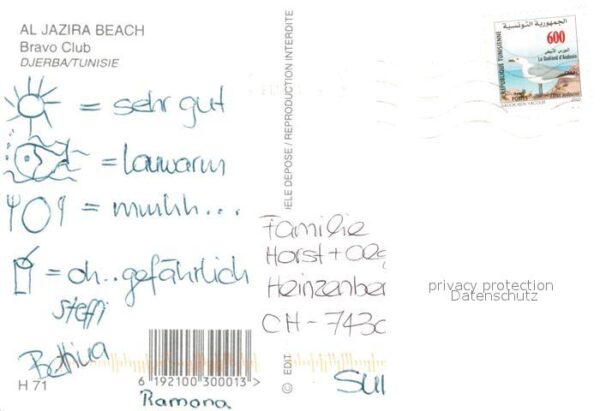 AL JAZIRA BEACH
Bravo Club
DJERBA/TUNISIE
= sehr gut
= lauwarm
= mmhh...
= oh..gefährlich
Steffi
Bettina
H 71
6 192100 300013 >
Ramona
© EDIT
ELE DEPOSE / REPRODUCTION INTERDITE
الجمهورية التونسية
600
REPUBLIQUE TUNISIENNE
Le Goéland d'Audouin
Familie
Horst +
Heinzenber
CH - 743
privacy protection
Datenschutz